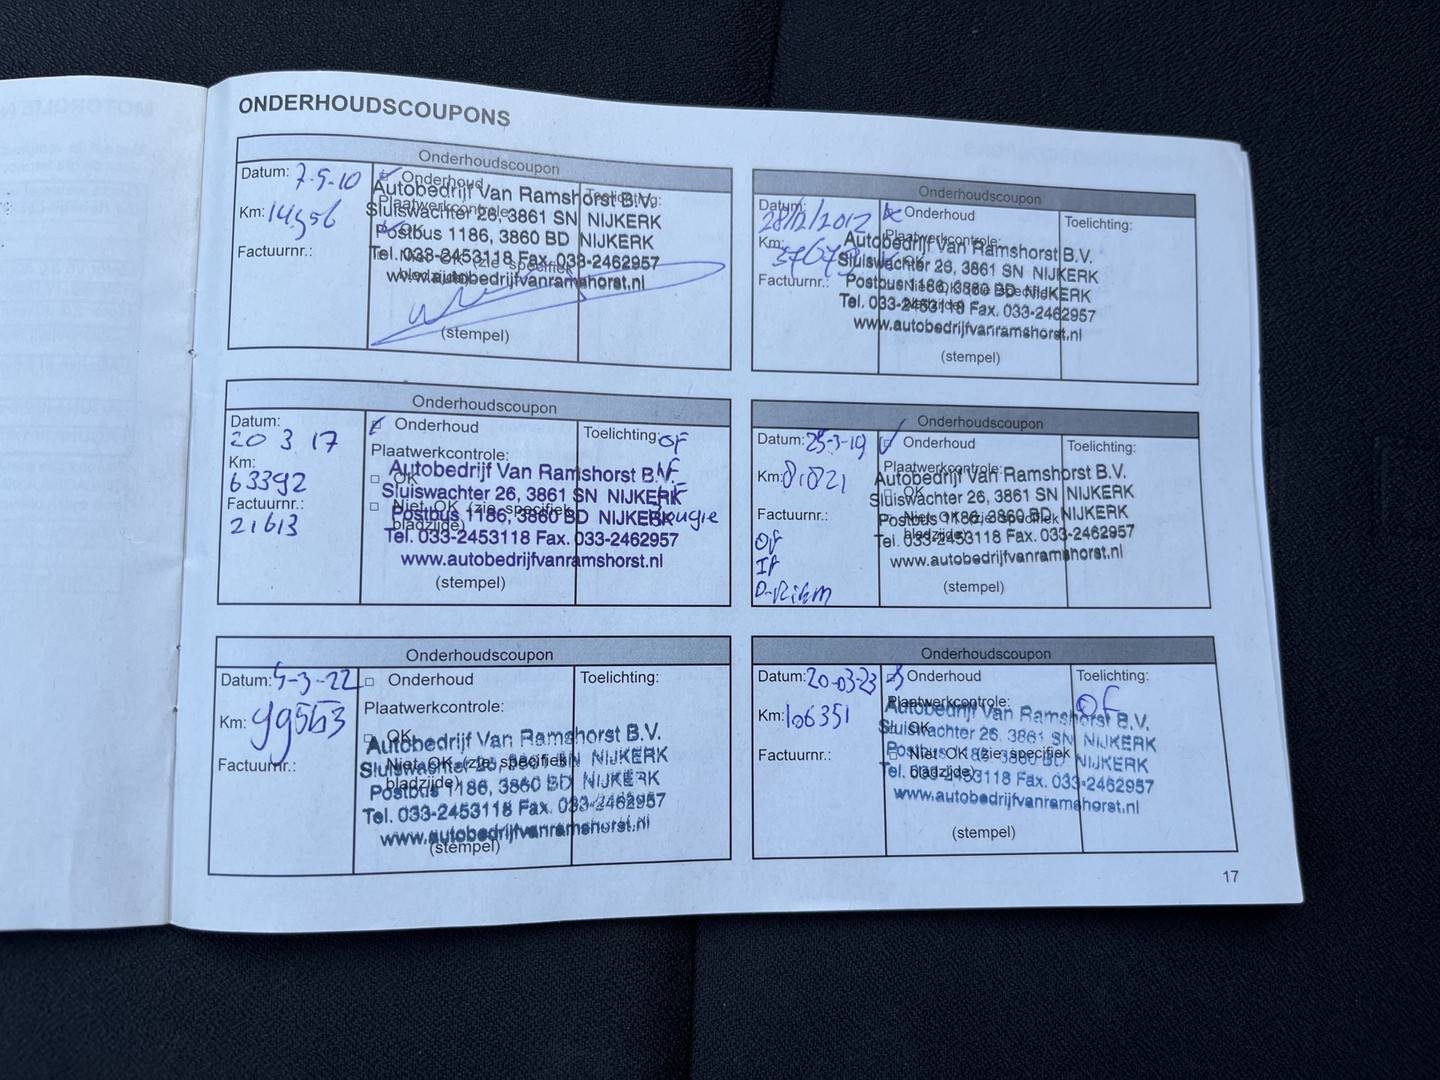 ONDERHOUDSCOUPONS
Onderhoudscoupon
Datum: 7-5-10
Onderhoud
Toelichting:
Plaatwerkcontrole:
Km:
OK
Factuurnr.:
Niet OK (zie specifiek
bladzijde)
Autobedrijf Van Ramshorst B.V.
Sluiswachter 26, 3861 SN NIJKERK
Postbus 1186, 3860 BD NIJKERK
Tel. 033-2453118 Fax. 033-2462957
www.autobedrijfvanramshorst.nl
(stempel)
Onderhoudscoupon
Datum:
28/12/2012
Onderhoud
Toelichting:
Plaatwerkcontrole:
Km:
OK
Factuurnr.:
Niet OK (zie specifiek
bladzijde)
Autobedrijf Van Ramshorst B.V.
Sluiswachter 26, 3861 SN NIJKERK
Postbus 1186, 3860 BD NIJKERK
Tel. 033-2453118 Fax. 033-2462957
www.autobedrijfvanramshorst.nl
(stempel)
Onderhoudscoupon
Datum:
20 3 17
Km:
63392
Factuurnr.:
21613
Onderhoud
Plaatwerkcontrole:
OK
Niet OK (zie specifiek
bladzijde)
Autobedrijf Van Ramshorst B.V.
Sluiswachter 26, 3861 SN NIJKERK
Postbus 1186, 3860 BD NIJKERK
Tel. 033-2453118 Fax. 033-2462957
www.autobedrijfvanramshorst.nl
(stempel)
Toelichting: OF
IF
Bougie
Onderhoudscoupon
Datum: 25-3-19
Km: 81821
Factuurnr.:
OF
IF
Onderhoud
Plaatwerkcontrole:
OK
Niet OK (zie specifiek
bladzijde)
Autobedrijf Van Ramshorst B.V.
Sluiswachter 26, 3861 SN NIJKERK
Postbus 1186, 3860 BD NIJKERK
Tel. 033-2453118 Fax. 033-2462957
www.autobedrijfvanramshorst.nl
(stempel)
Toelichting:
Onderhoudscoupon
Datum: 5-3-22
Km: 99563
Factuurnr.:
Onderhoud
Plaatwerkcontrole:
OK
Niet OK (zie specifiek
bladzijde)
Autobedrijf Van Ramshorst B.V.
Sluiswachter 26, 3861 SN NIJKERK
Postbus 1186, 3860 BD NIJKERK
Tel. 033-2453118 Fax. 033-2462957
www.autobedrijfvanramshorst.nl
(stempel)
Toelichting:
Onderhoudscoupon
Datum: 20-03-23
Km: 106351
Factuurnr.:
Onderhoud
Plaatwerkcontrole:
OK
Niet OK (zie specifiek
bladzijde)
Autobedrijf Van Ramshorst B.V.
Sluiswachter 26, 3861 SN NIJKERK
Postbus 1186, 3860 BD NIJKERK
Tel. 033-2453118 Fax. 033-2462957
www.autobedrijfvanramshorst.nl
(stempel)
Toelichting:
OF
17